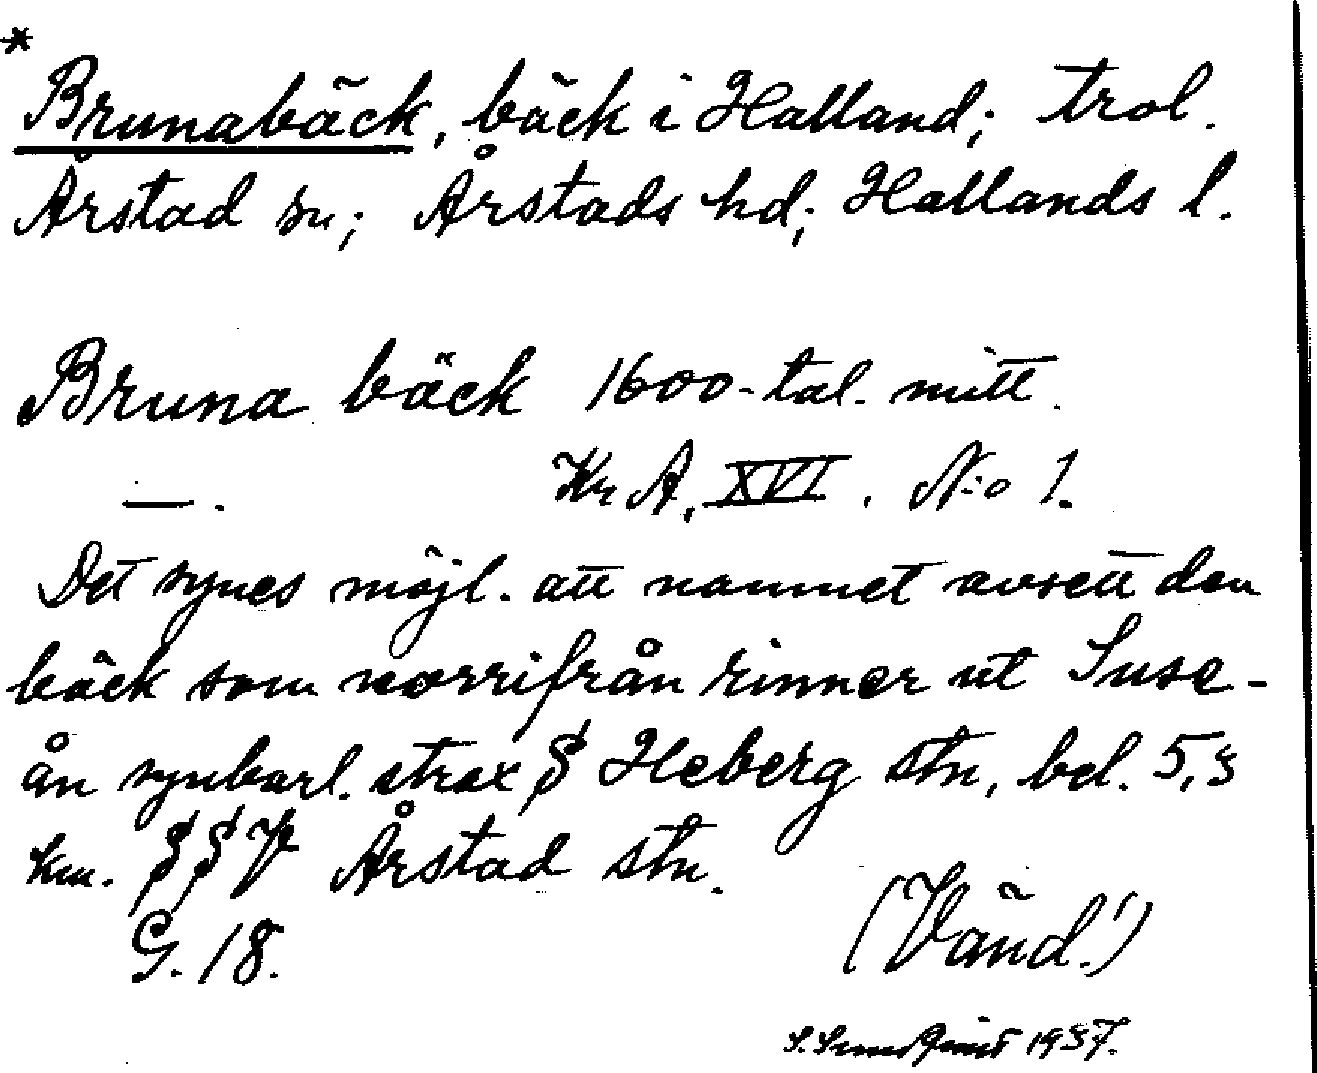 *
Brunabäck, bäck i Halland; trol.
Årstad sn; Årstads hd; Hallands l.
Bruna bäck 1600-tal. mitt.
—. Kr A, XVI. N:o 1.
Det synes möjl. att namnet avsett den
bäck som norrifrån rinner ut Suse-
ån synbarl. strax S Heberg stn, bel. 5,3
km. SSV Årstad stn.
G. 18.
(Vänd!)
1937.